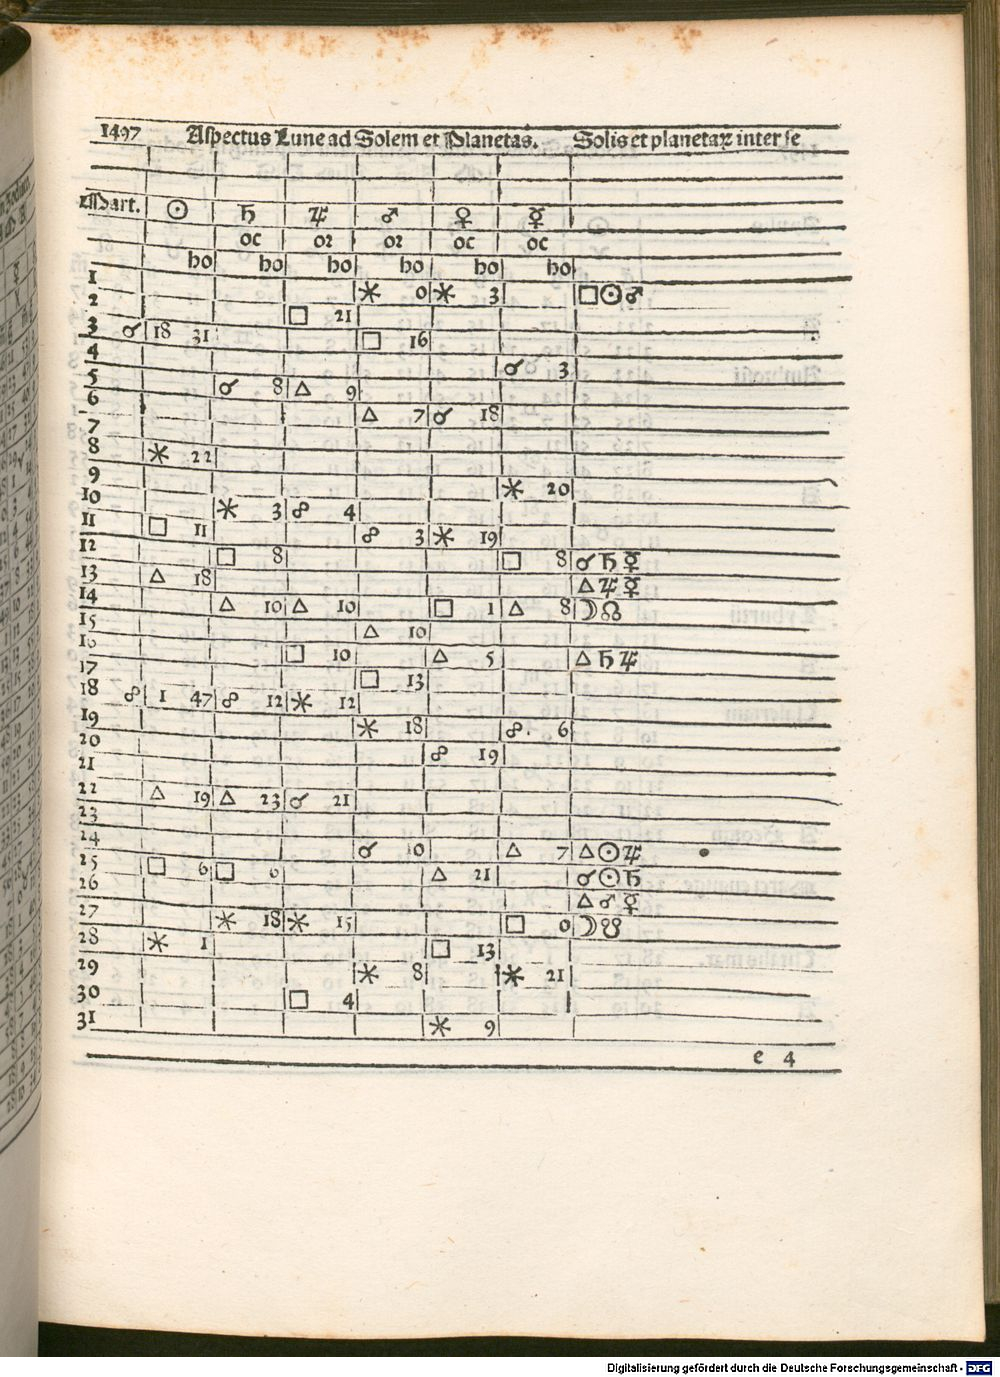 1497 Aspectus Lune ad Solem et Planetas. Solis et planetaꝝ inter se
Mart. ☉ ♄ ♃ ♂ ♀ ☿
oc or or oc oc
ho ho ho ho ho ho
1
2 ⚹ 0 ⚹ 3 □ ☉ ♂
3 ☌ 18 31 □ 21
4 □ 16
5 ☌ 3
6 ☌ 8 △ 9
7 △ 7 ☌ 18
8 ⚹ 22
9
10 ⚹ 20
11 □ 11 ⚹ 3 ☍ 4
12 □ 8 ☍ 3 ⚹ 19 □ 8 ☌ ♄ ☿
13 △ 18 △ ♃ ☿
14 △ 10 △ 10 □ 1 △ 8 ☽ ☊
15 △ 10
16 □ 10 △ 5 △ ♄ ♃
17 □ 13
18 ☍ 1 47 ☍ 12 ⚹ 12
19 ⚹ 18 ☍ 6
20 ☍ 19
21
22 △ 19 △ 23 ☌ 21
23
24 ☌ 10 △ 7 △ ☉ ♃
25 □ 6 □ 6 △ 21 ☌ ☉ ♄
26 △ ♂ ☿
27 ⚹ 18 ⚹ 15 □ 0 ☽ ☋
28 ⚹ 1 □ 13
29 ⚹ 8 ⚹ 21
30 □ 4
31 ⚹ 9
e 4
Digitalisierung gefördert durch die Deutsche Forschungsgemeinschaft - DFG